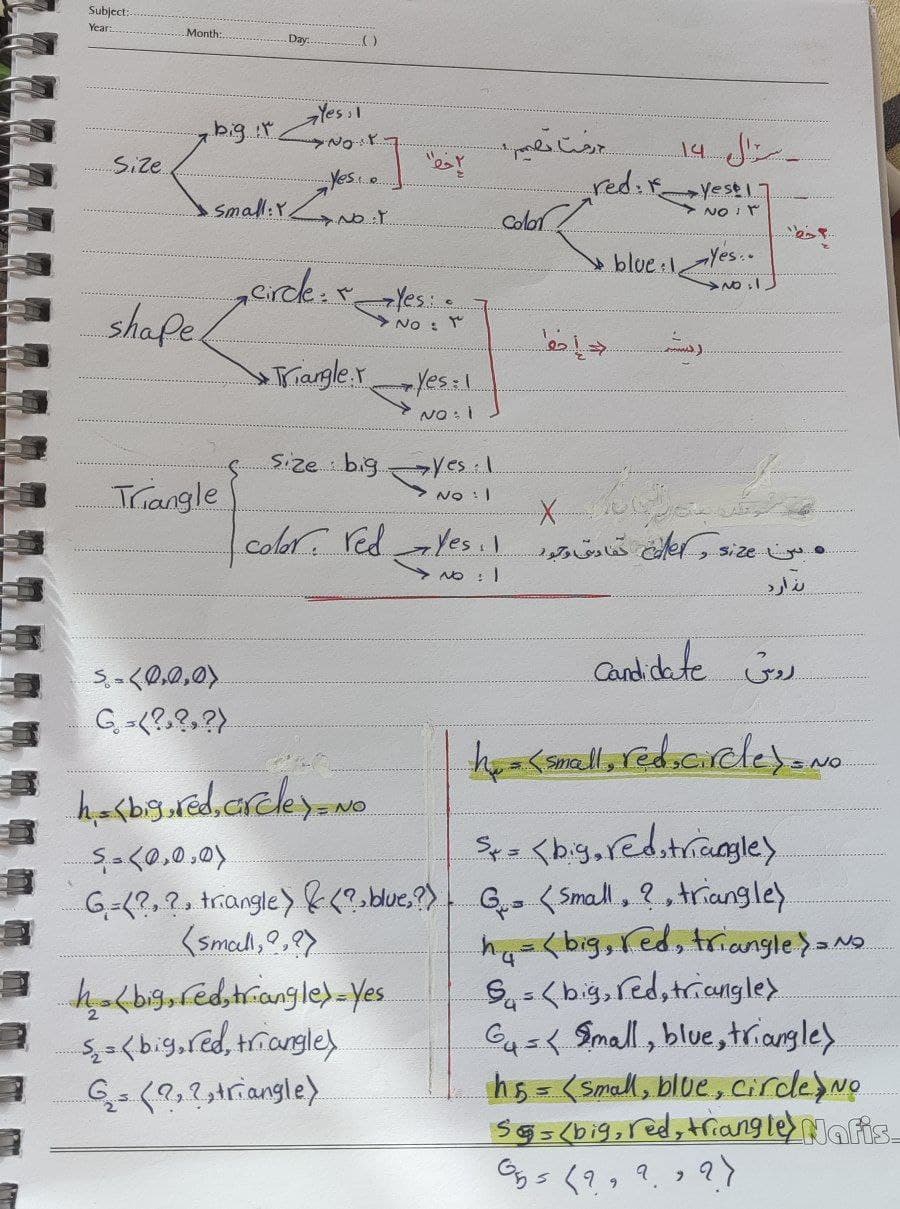 Subject:
Year: Month: Day: ( )
سوال ۱۴ درخت تصمیم:
size
big : ۳
Yes : ۱
No : ۲
small : ۲
Yes : ۰
No : ۲
۱ خطا
color
red : ۴
Yes : ۱
No : ۳
blue : ۱
Yes : ۰
No : ۱
shape
circle : ۳
Yes : ۰
No : ۳
Triangle : ۲
Yes : ۱
No : ۱
ریشه ⇐ خطا
Triangle
size : big
Yes : ۱
No : ۱
color : red
Yes : ۱
No : ۱
X
• بین size و color تفاوتی وجود
ندارد
روش Candidate
S₀ = <Ø,Ø,Ø>
G₀ = <?,?,?>
h₁ = <big, red, circle> = No
S₁ = <Ø,Ø,Ø>
G₁ = <?,?, triangle> & <?, blue, ?>
<small, ?, ?>
h₂ = <big, red, triangle> = Yes
S₂ = <big, red, triangle>
G₂ = <?, ?, triangle>
h₃ = <small, red, circle> = No
S₃ = <big, red, triangle>
G₃ = <small, ?, triangle>
h₄ = <big, red, triangle> = No
S₄ = <big, red, triangle>
G₄ = <small, blue, triangle>
h5 = <small, blue, circle> No
S5 = <big, red, triangle>
G5 = <?, ?, ?>
Nafis